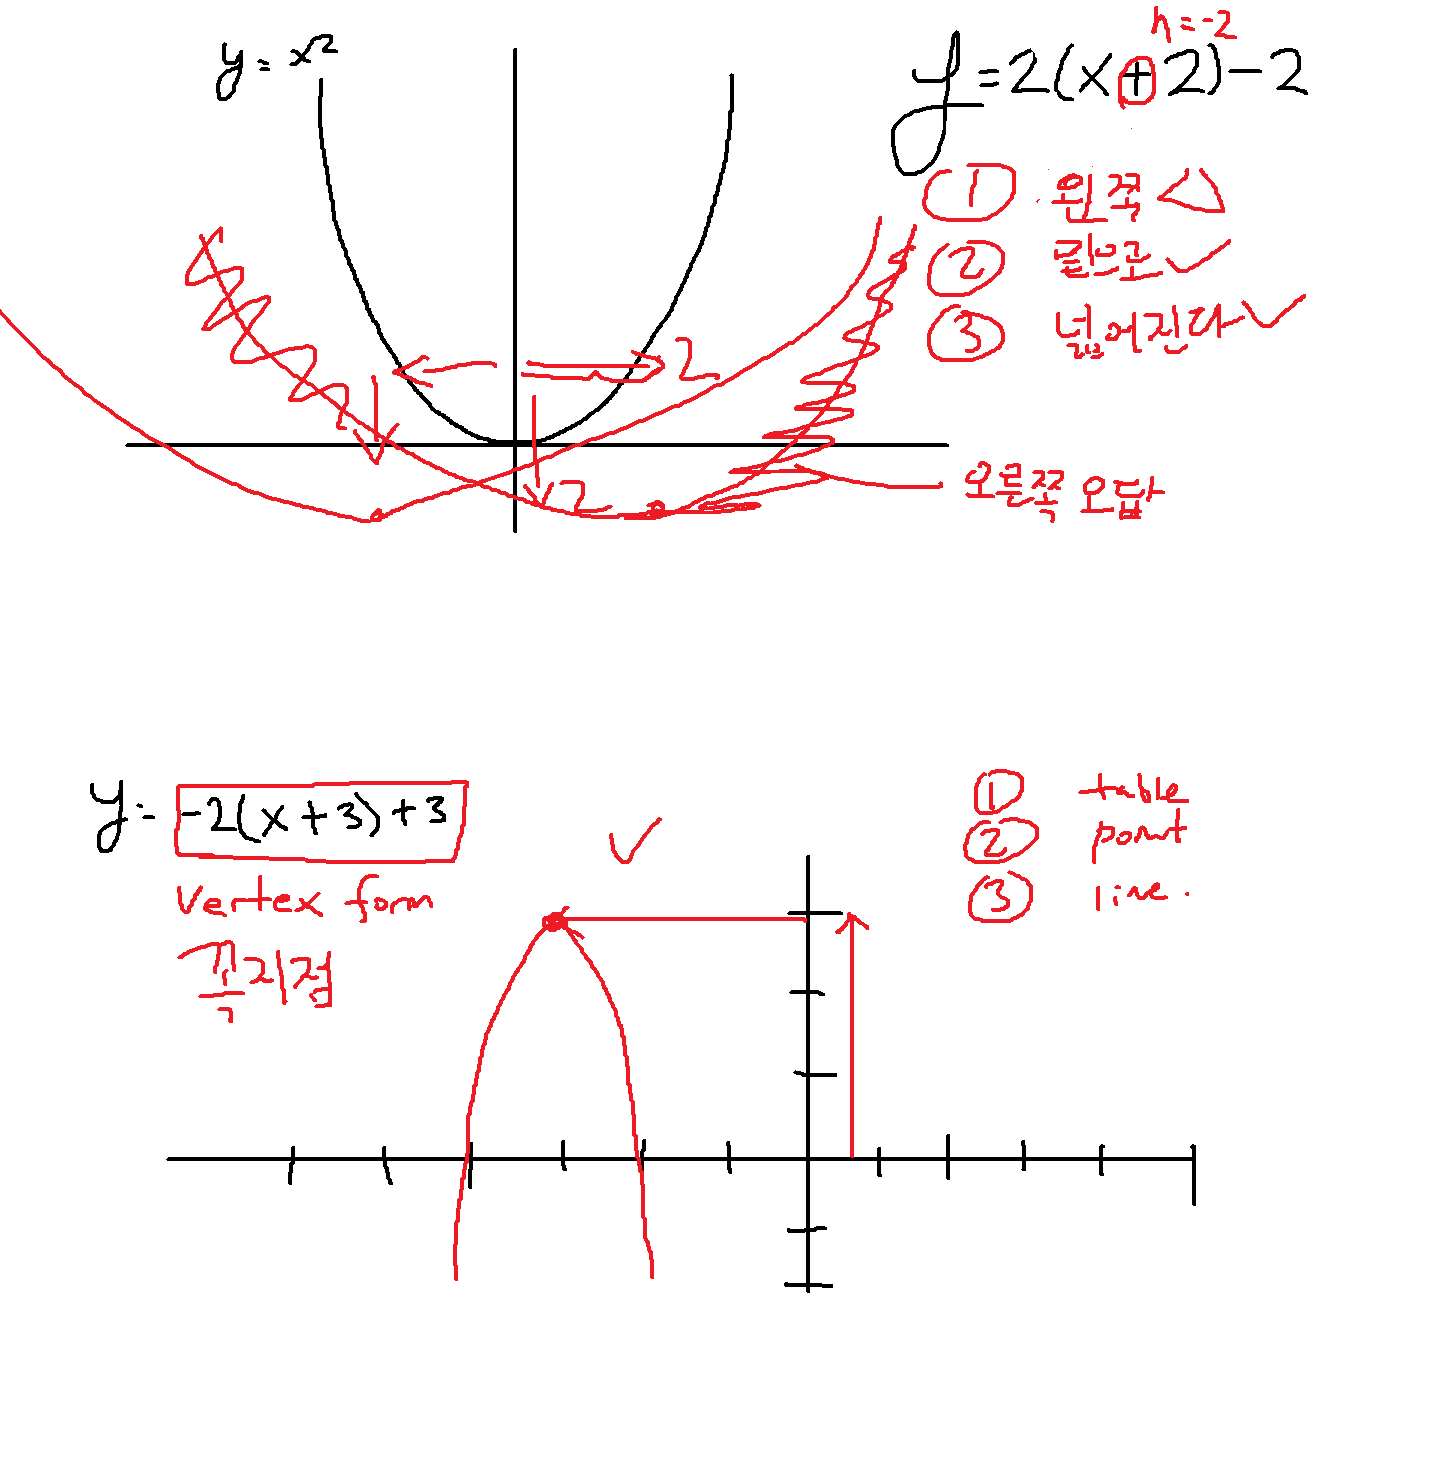 y = x²
h = -2
y = 2(x+2) - 2
① 왼쪽
② 밑으로
③ 넓어진다
2
2
오른쪽 오답
y = -2(x+3)+3
vertex form
꼭지점
① table
② point
③ line.